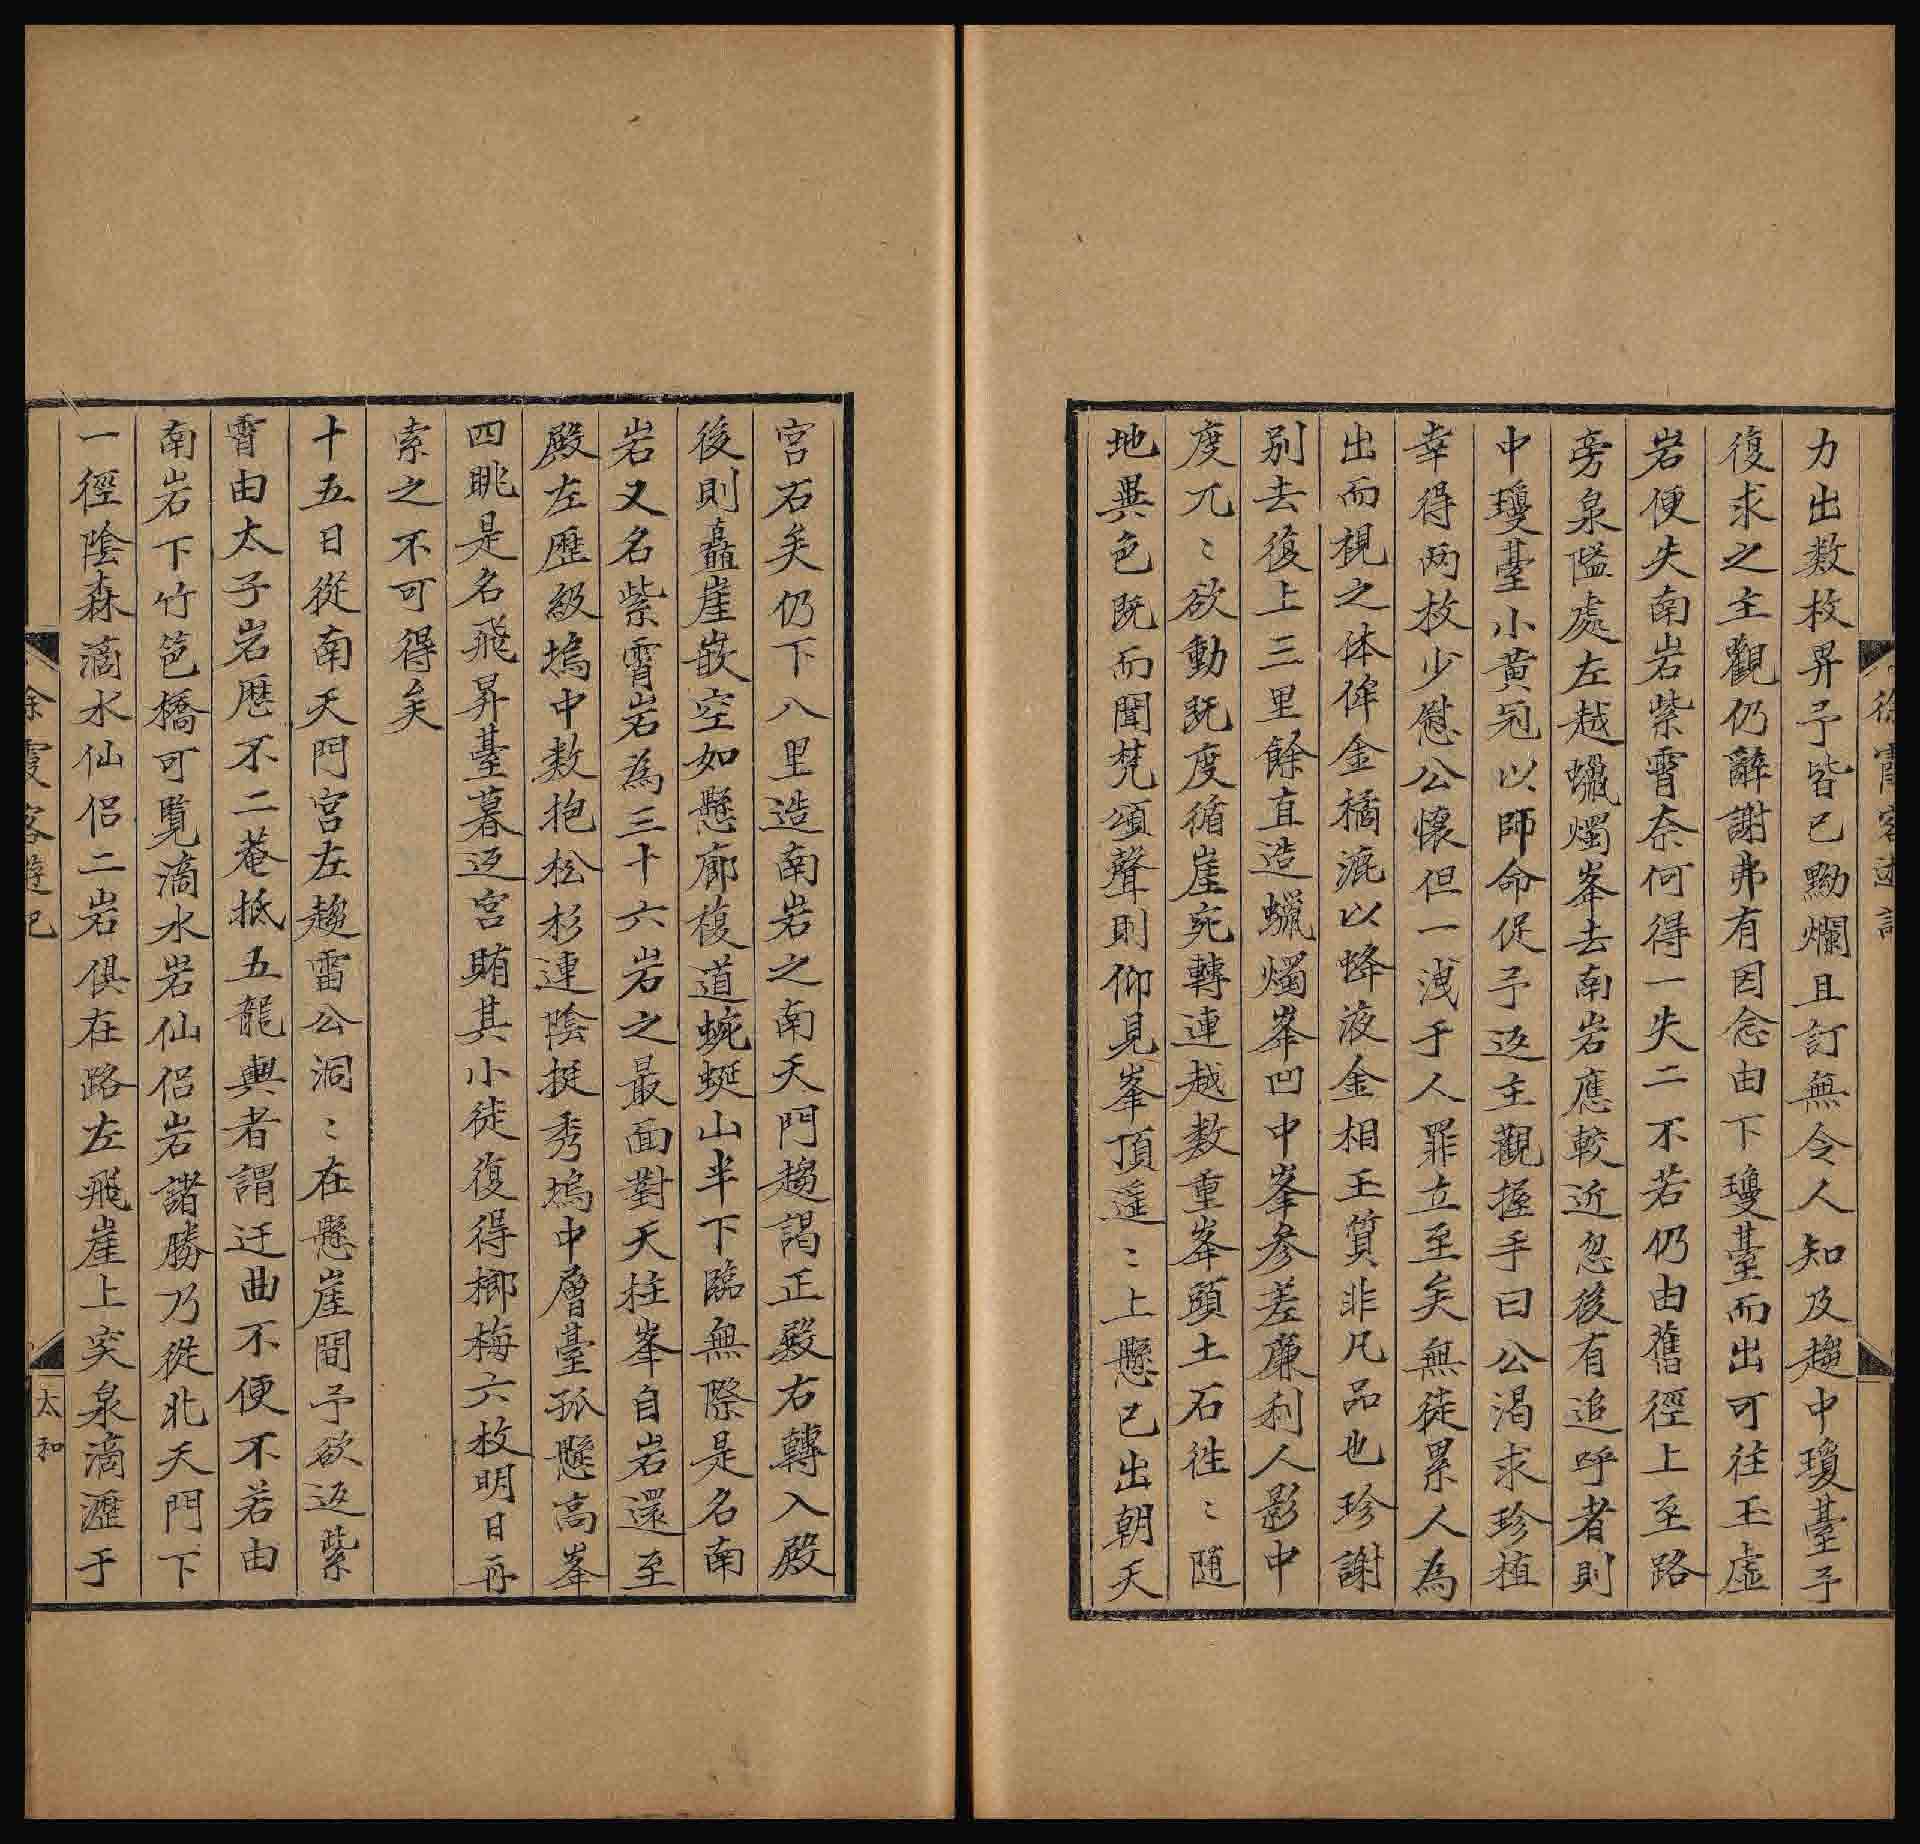 徐霞客遊記
力出数枚畀予皆已黝爛且訂無令人知及趨中瓊臺予
復求之主觀仍辭謝弗有因念由下瓊臺而出可往玉虛
岩便失南岩紫霄奈何得一失二不若仍由舊徑上至路
旁泉隘處左越蠟燭峯去南岩應較近忽後有追呼者則
中瓊臺小黃冠以師命促予返主觀握手曰公渴求珍植
幸得两枚少慰公懷但一洩于人罪立至矣無徒累人為
出而視之体侔金橘漉以蜂液金相玉質非凡品也珍謝
别去復上三里餘直造蠟燭峯凹中峯參差廉利人影中
度兀〻欲動既度循崖宛轉連越数重峯頭土石徃〻随
地異色既而聞梵頌聲則仰見峯頂遥〻上懸已出朝天
宮右矣仍下八里造南岩之南天門趨謁正殿右轉入殿
後則矗崖嵌空如懸廊複道蜿蜒山半下臨無際是名南
岩又名紫霄岩為三十六岩之最面對天柱峯自岩還至
殿左歷級塢中数抱松杉連陰挺秀塢中層臺孤懸高峯
四眺是名飛昇臺暮返宮賄其小徒復得榔梅六枚明日再
索之不可得矣
十五日從南天門宮左趨雷公洞〻在懸崖間予欲返紫
霄由太子岩歷不二菴抵五龍輿者謂迂曲不便不若由
南岩下竹笆橋可覧滴水岩仙侣岩諸勝乃從北天門下
一徑陰森滴水仙侣二岩俱在路左飛崖上突泉滴瀝于
徐霞客遊記
太和